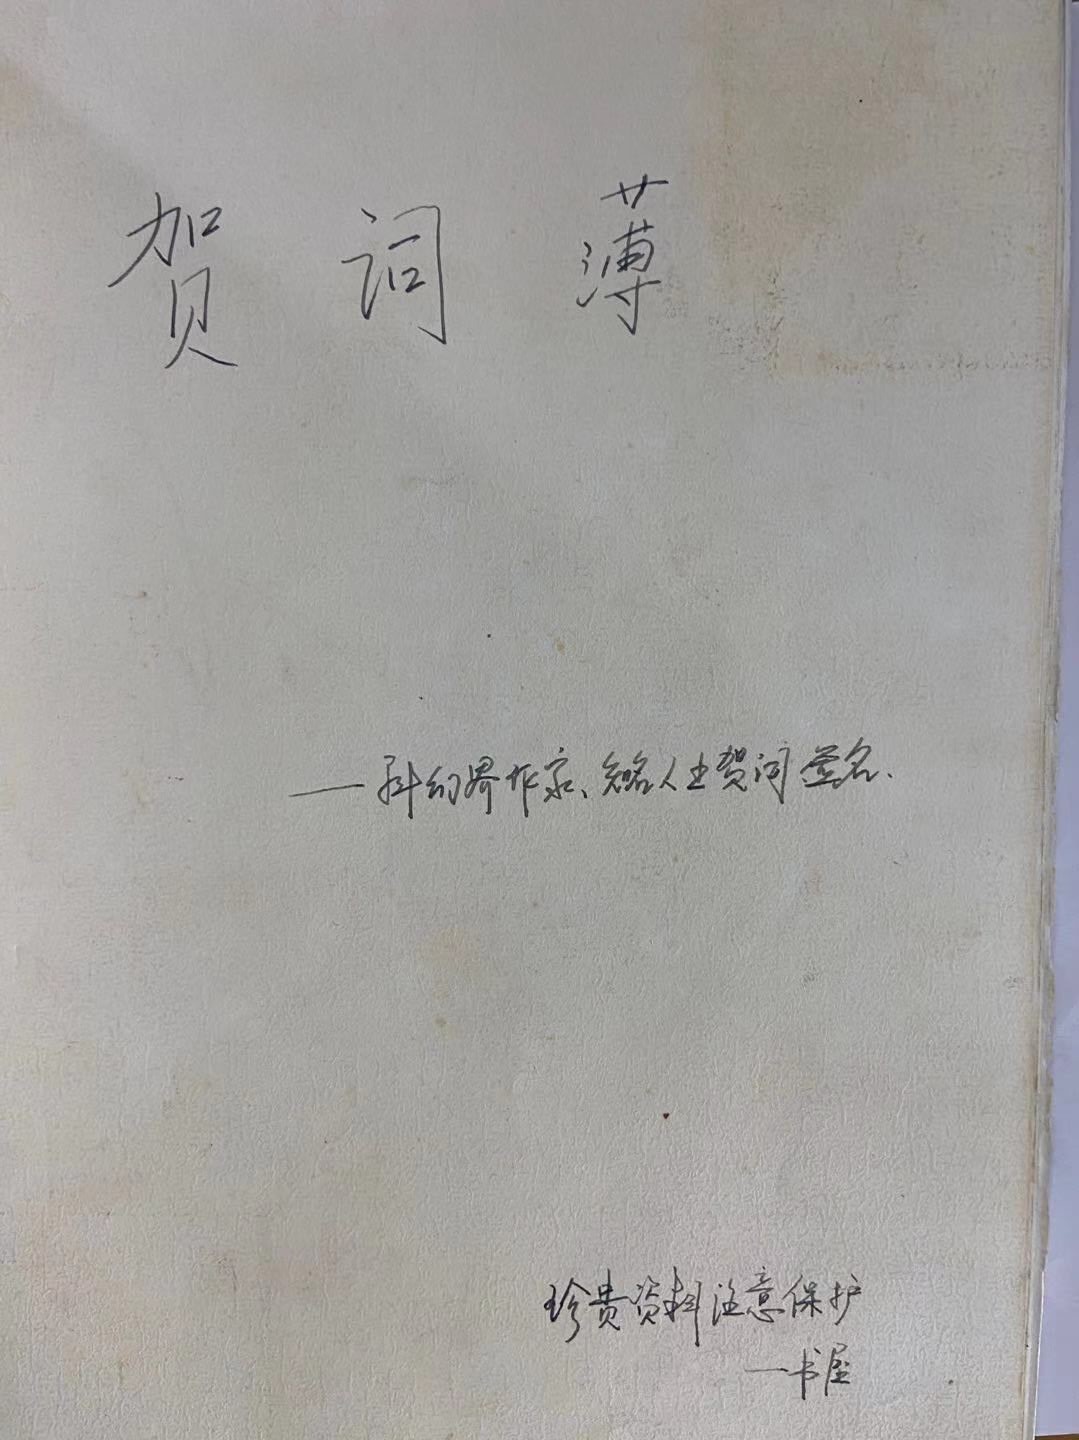 贺词薄
——科幻界作家、知名人士贺词签名.
珍贵资料注意保护
—书屋